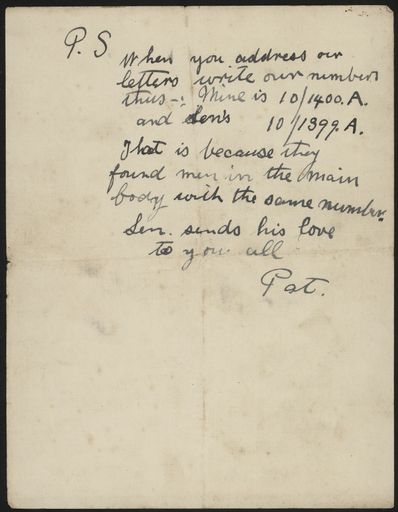 P.S
When you address our
letters write our numbers
thus -: Mine is 10/1400.A.
and Len's 10/1399.A.
That is because they
found men in the main
body with the same number.
Len. sends his love
to you all
Pat.